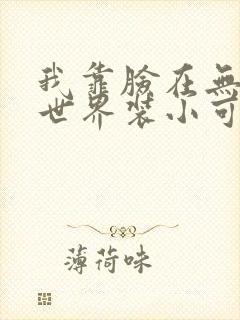 我靠臉在無
世界裝小可
薄荷味